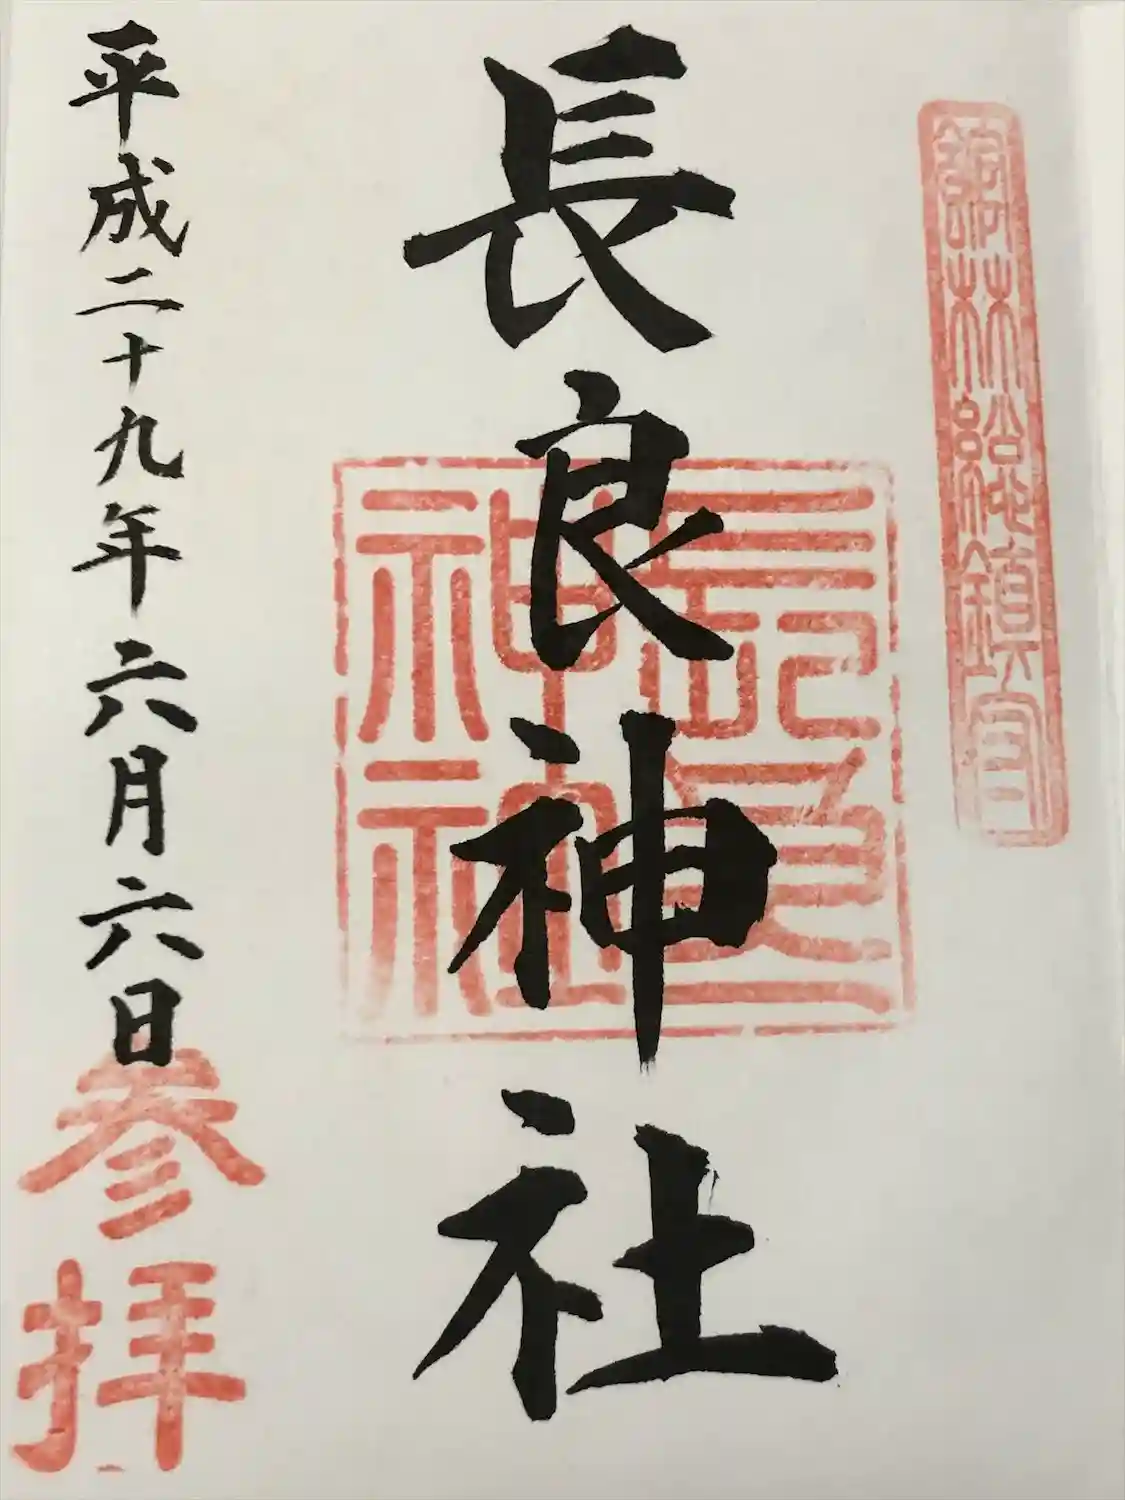 館林總鎮守
長良神社
長良神社
平成二十九年六月六日
参拝